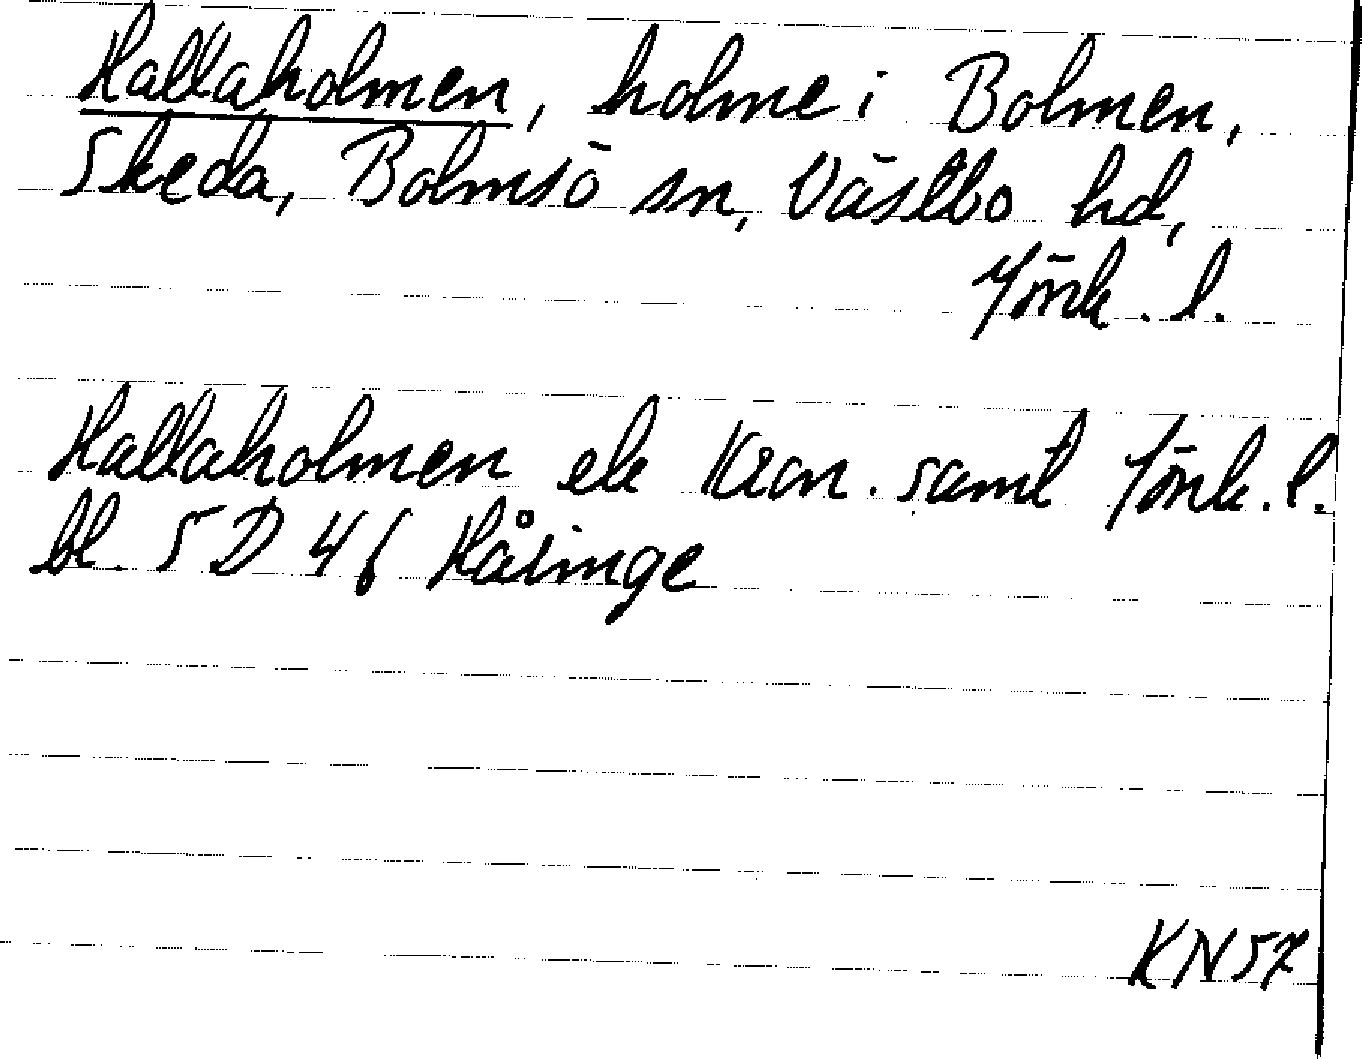 Hallaholmen, holme i Bolmen,
Skeda, Bolmsö sn, Västbo hd,
Jönk. l.
Hallaholmen ek Kron. samt Jönk. l.
bl. 5 D 4 f Håringe
KN57